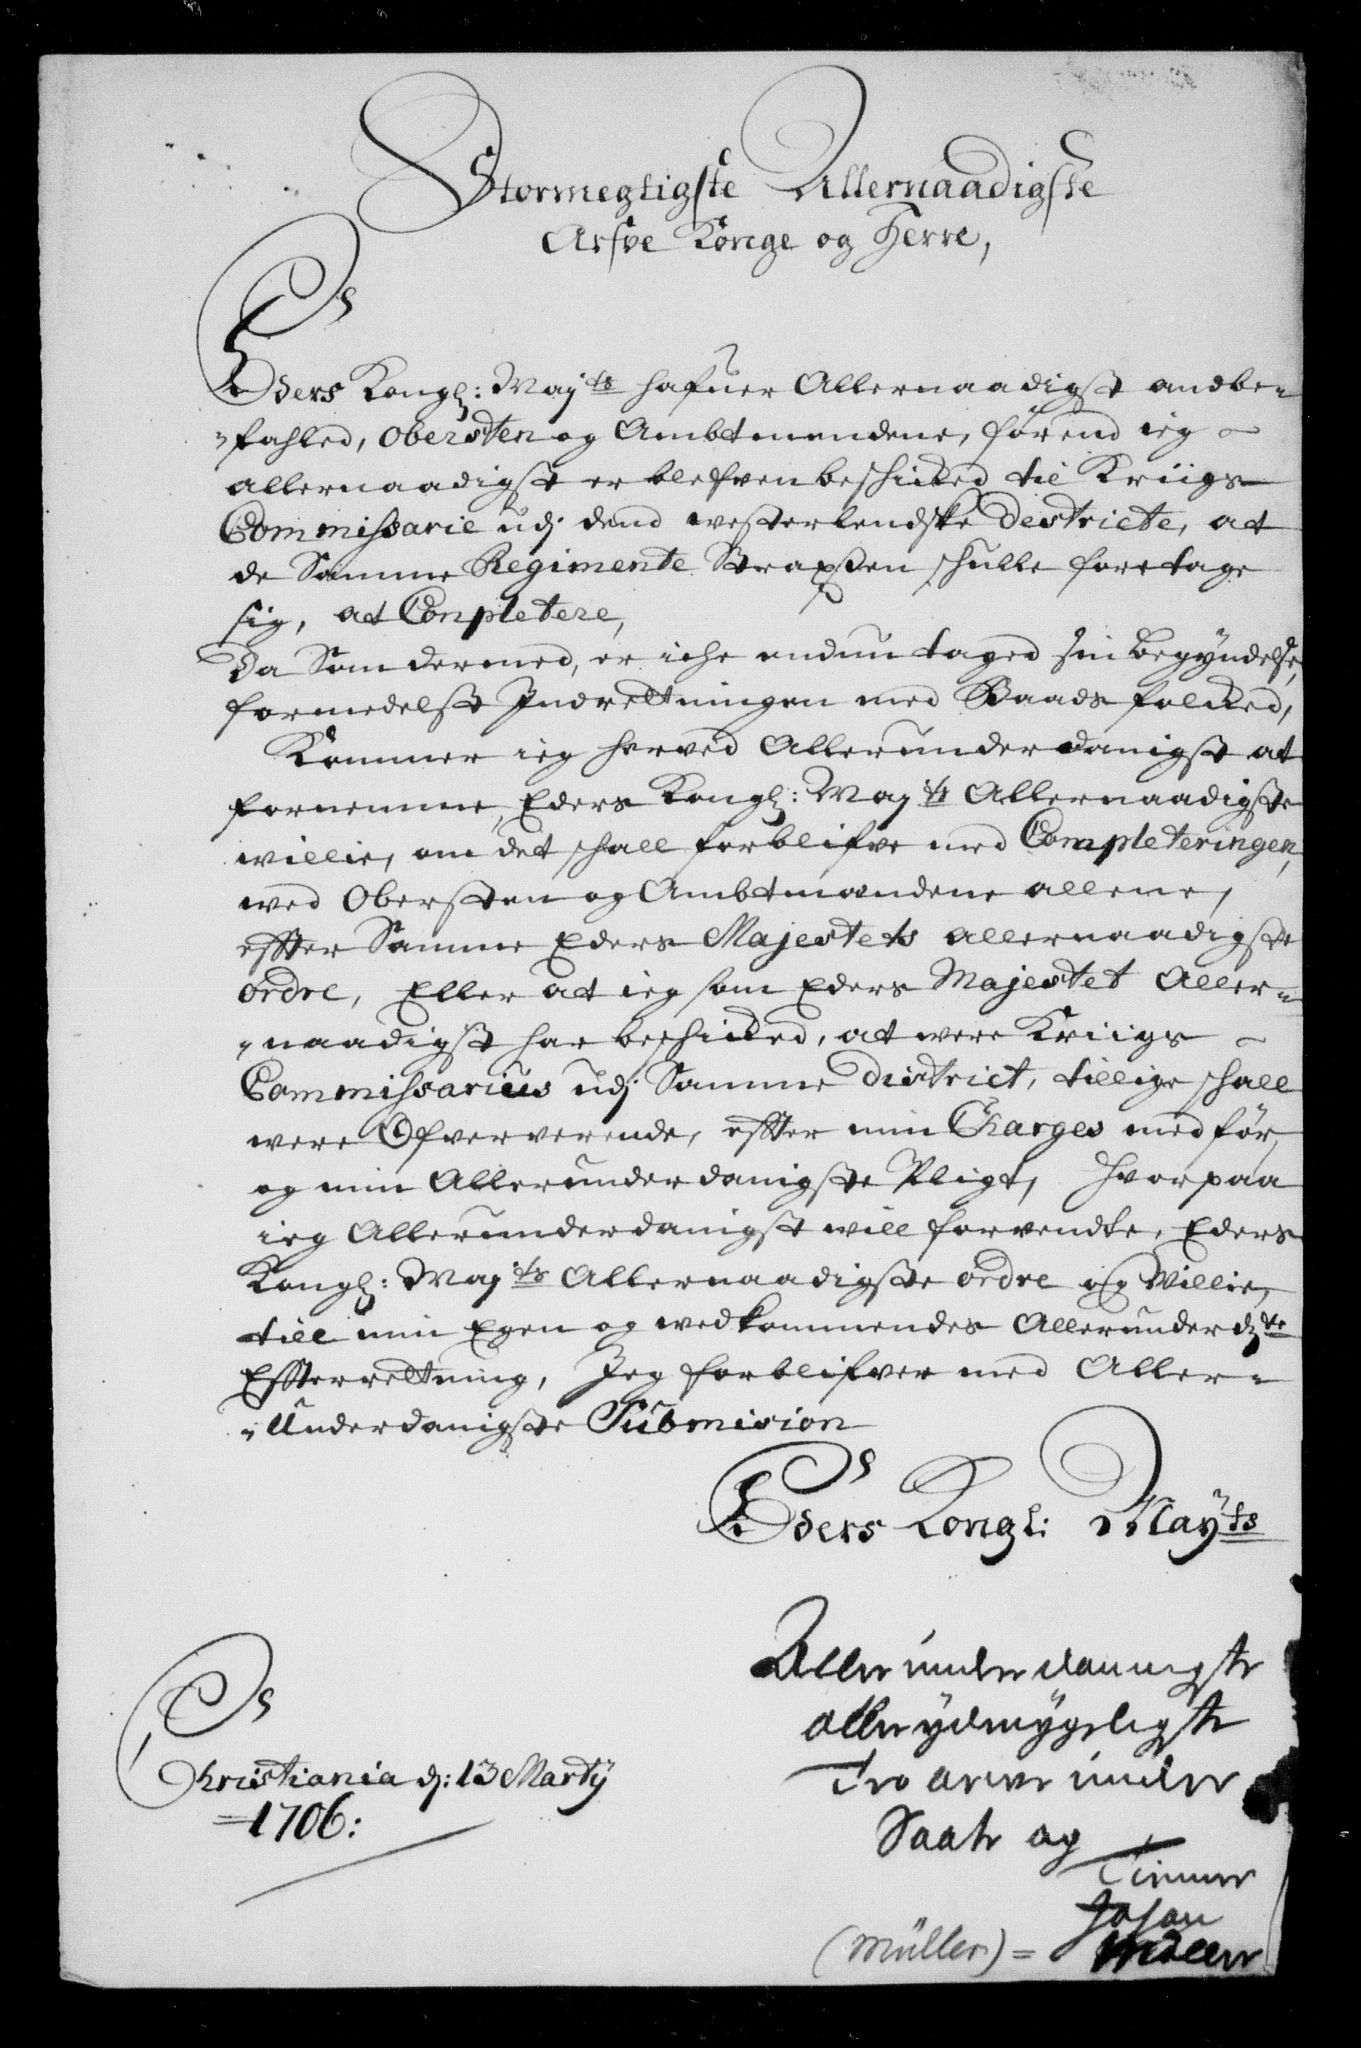 Stormegtigste Allernaadigste
Arfve Konge og Herre,
Eders Kongl: Mayts hafuer Allernaadigst andbe-
-fahled, Obersten og Ambtmendene, førend ieg
allernaadigst er blefven beschicked til Kriigs
Commissarie udj dend westerlendske Destricte, at
de Samme Regimente Straxsen schulle foretage
sig, at Conpletere,
Da Som dermed, er iche endnu taged sin begyndelse,
formedelst Indrettningen med Baads folcked,
Kommer ieg herved Allerunderdanigst at
fornemme, Eders Kongl: Mayts Allernaadigste
willie, om det schall forblifve med Completeringen,
wed Obersten og Ambtmandene allene,
effter Samme Eders Majestets allernaadigste
ordre, Eller at ieg som Eders Majestet Aller-
-naadigst har beschicked, at were Kriigs
Commissarius udj Samme District, tillige schall
were Ofververende, effter min Charges medför,
og min Allerunderdanigste Pligt, hvorpaa
ieg Allerunderdanigst will forvendte, Eders
Kongl: Mayts Allernaadigste ordre og Willie,
till min Egen og wedkommendes Allerunderdte
Effterrettning, Jeg forblifver med Aller-
-Underdanigste Submision
Eders Kongl: Mayts
Aller underdannigste
aller ydmygeligste
Tro arve under
Saate og
Tienner
Johan
(Müller) = Möller
Christiania d: 13 Martij
=1706: